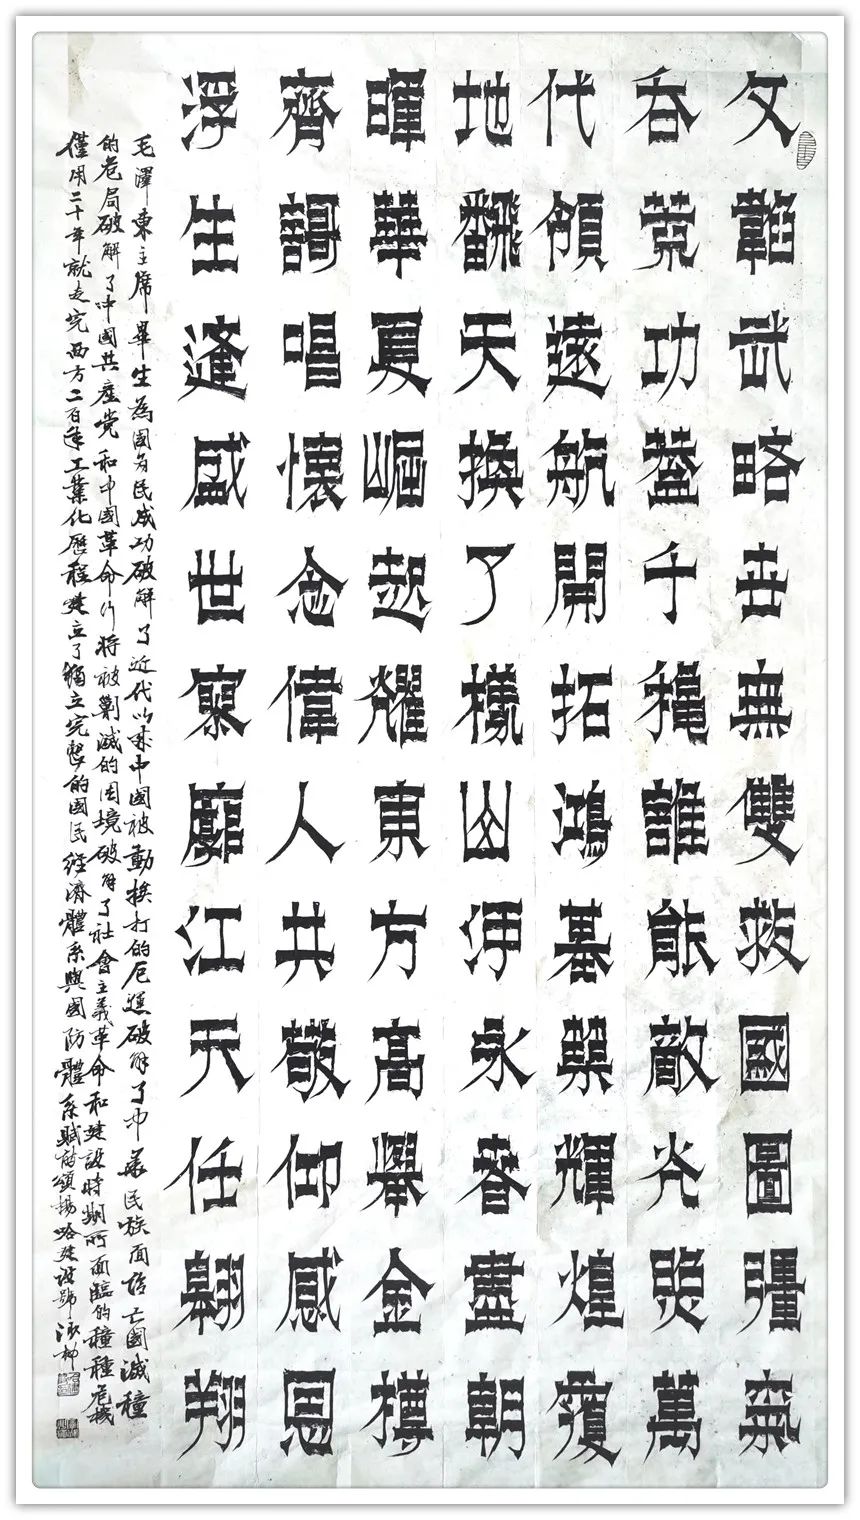 文韜武略世無雙救國圖彊氣
吞荒功蓋千穐誰能敵光照萬
代領遠航開拓鴻基業輝煌覆
地翻天換了樣山河永春盡朝
暉華夏崛起耀東方高擧金樽
齊謌唱懷念偉人共敬仰感恩
浮生逢盛世寥廓江天任翱翔
毛澤東主席畢生為國為民成功破解了近代以來中國被動挨打的厄運破解了中華民族面臨亡國滅種
的危局破解了中國共產党和中國革命行將被剿滅的困境破解了社會主義革命和建設時期所面臨的種種危機
僅用二十年就走完西方二百年工業化歷程建立了獨立完整的國民經濟體系與國防體系賦詩頌揚